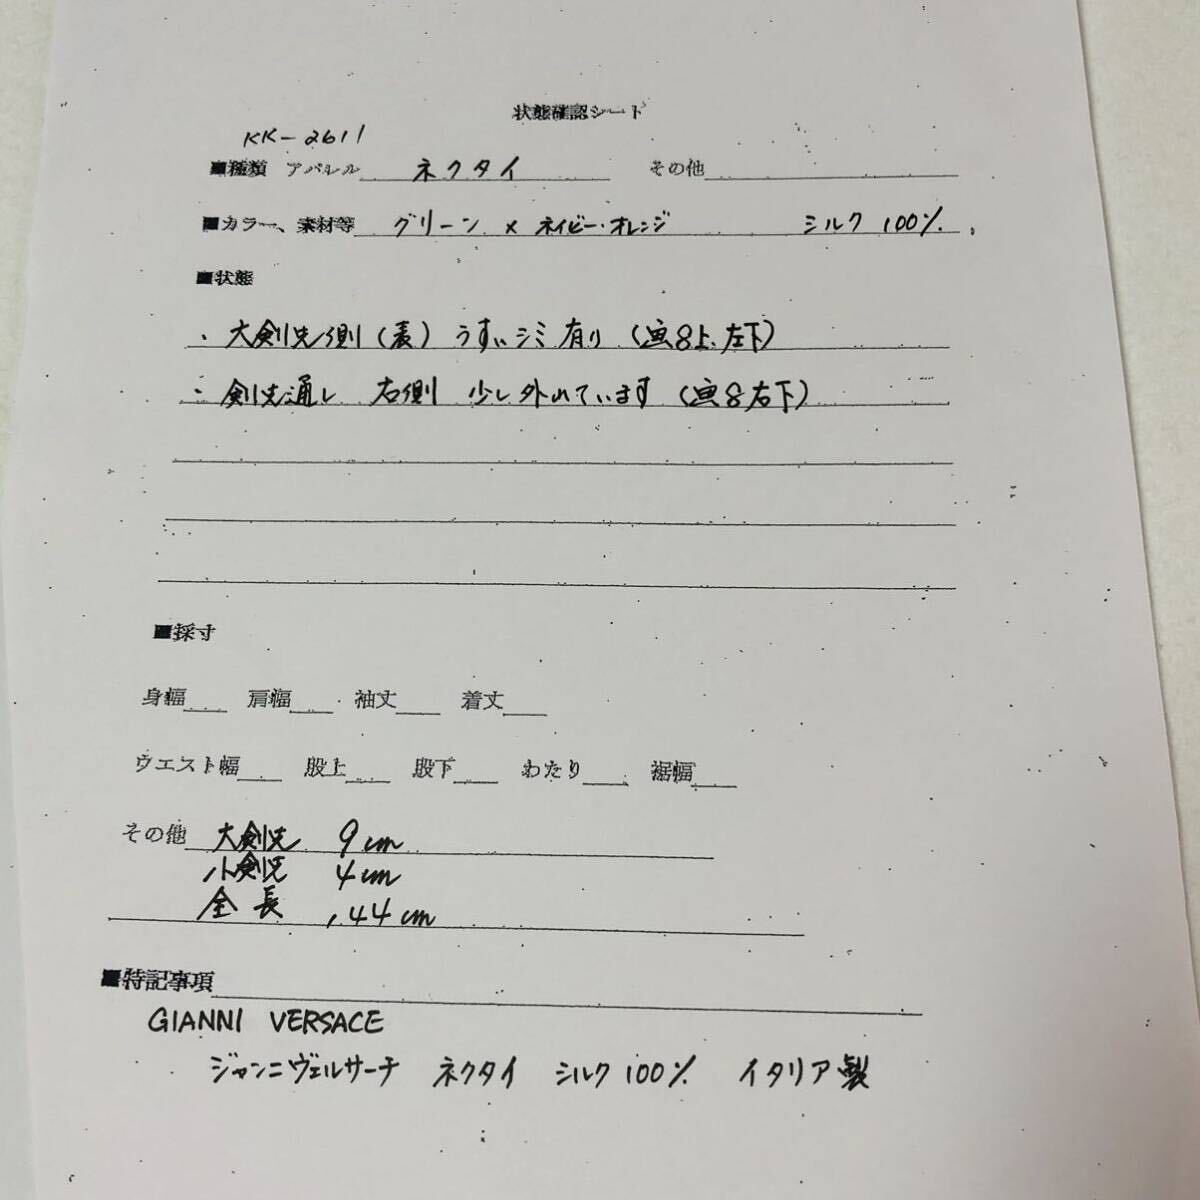 状態確認シート
KK-2611
■種類 アパレル ネクタイ その他
■カラー、素材等 グリーン × ネイビー・オレンジ シルク 100%
■状態
・大剣先側(表) うすいシミ有り (画8上、左下)
・剣先通し 右側 少し外れています (画8右下)
■採寸
身幅 肩幅 袖丈 着丈
ウエスト幅 股上 股下 わたり 裾幅
その他 大剣先 9cm
小剣先 4cm
全長 144cm
■特記事項
GIANNI VERSACE
ジャンニヴェルサーチ ネクタイ シルク100% イタリア製